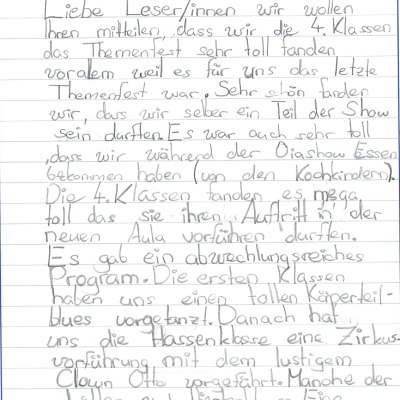 Liebe Leser/innen wir wollen
Ihnen mitteilen, dass wir die 4. Klassen
das Themenfest sehr toll fanden
voralem weil es für uns das letzte
Themenfest war. Sehr schön fanden
wir, dass wir selber ein Teil der Show
sein durften. Es war auch sehr toll
,dass wir während der Diashow Essen
bekommen haben (von den Kochkindern).
Die 4. Klassen fanden es mega
toll das sie ihren Auftritt in der
neuen Aula vorführen durften.
Es gab ein abwechlungsreiches
Program. Die ersten Klassen
haben uns einen tollen Köperteil-
blues vorgetanzt. Danach hat
uns die Hassenklasse eine Zirkus-
vorführung mit dem lustigem
Clown Otto vorgeführt. Manche der